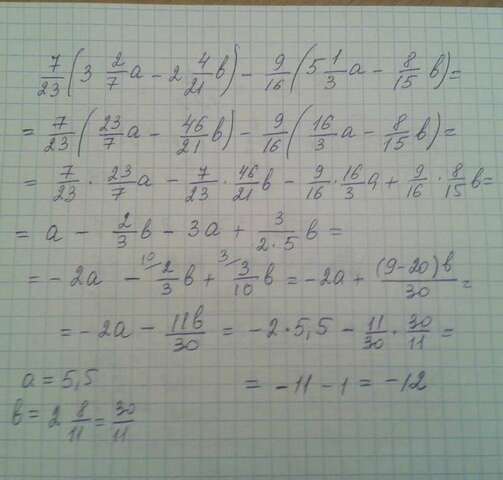 7/23 (3 2/7 a − 2 4/21 в) − 9/16 (5 1/3 a − 8/15 в) =
= 7/23 (23/7 a − 46/21 в) − 9/16 (16/3 a − 8/15 в) =
= 7/23 · 23/7 a − 7/23 · 46/21 в − 9/16 · 16/3 a + 9/16 · 8/15 в =
= a − 2/3 в − 3a + 3/(2·5) в =
= −2a − 10/ 2/3 в + 3/ 3/10 в = −2a + (9−20)в/30 =
= −2a − 11в/30 = −2·5,5 − 11/30 · 30/11 =
a = 5,5 = −11 − 1 = −12
в = 2 8/11 = 30/11